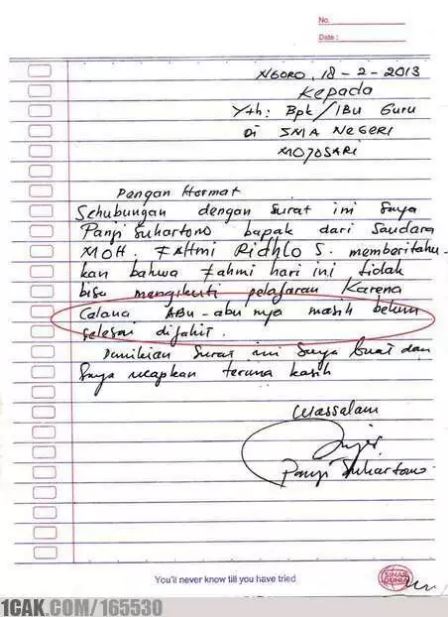 No.
Date :
NGORO, 18 - 2 - 2013
Kepada
Yth: Bpk/IBu Guru
Di SMA NEGERI
MOJOSARI
Dengan Hormat
Sehubungan dengan surat ini saya
Panji Suhartono bapak dari Saudara
MOH. FAHmi Ridhlo S. memberitahu-
kan bahwa Fahmi hari ini tidak
bisa mengikuti pelajaran Karena
Celana ABu-abu nya masih belum
selesai dijahit.
Demikian Surat ini Saya buat dan
Saya ucapkan terima kasih
Wassalam
Panji Suhartono
You'll never know till you have tried
SINAR DUNIA
1CAK.COM/165530